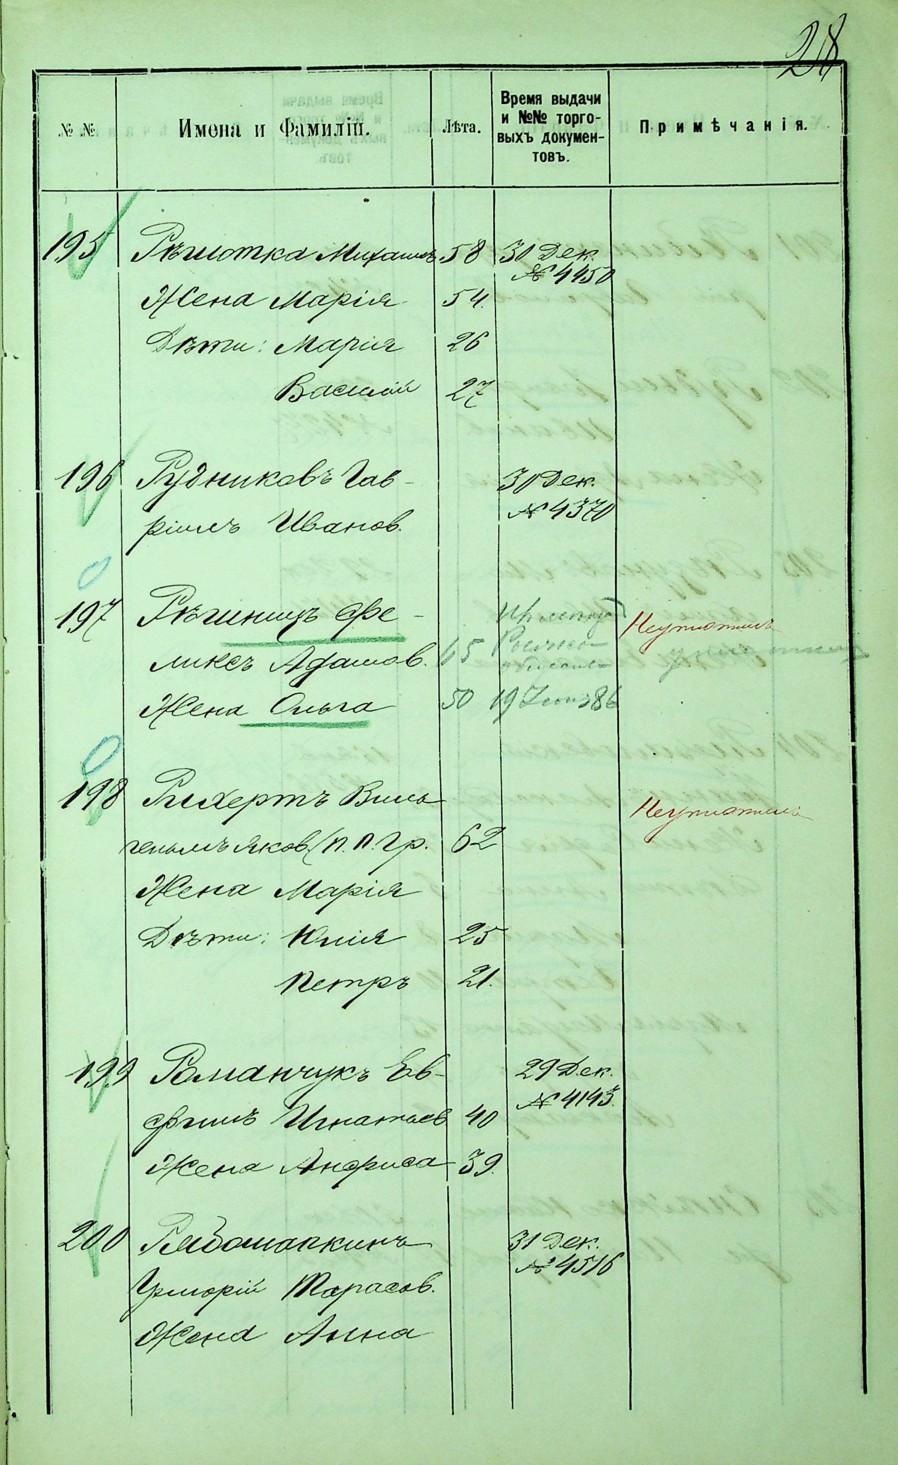 28
№ №
Имена и Фамиліи.
Лѣта.
Время выдачи
и №№ торго-
выхъ докумен-
товъ.
Примѣчанія.
195 58 30 Дек.
№ 4450
Жена Марія 54
Дѣти: Марія 26
Василій 27
196 Рудниковъ Гав- 30 Дек.
ріилъ Иванов. № 4370
197 Фе-
ликсъ Адамов. 65
Жена Ольга 50 19 86
198 Рихертъ Виль
гельмъ Яков. (П. П. Гр. 62
Жена Марія
Дѣти: Юлія 25
Петръ 21.
199 Романчукъ Ев- 29 Дек.
фимъ Игнатьев 40 № 4193.
Жена Анфиса 39.
200 Рябошапкинъ 31 Дек.
Григорій Тарасов. № 4516
Жена Анна